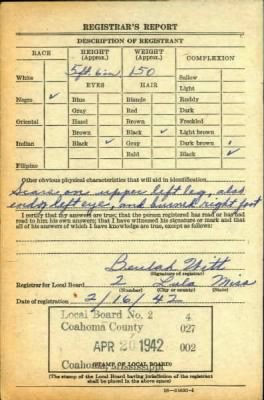 REGISTRAR'S REPORT
DESCRIPTION OF REGISTRANT
RACE
HEIGHT (Approx.)
WEIGHT (Approx.)
COMPLEXION
White
5ft 6in
150
Sallow
Light
EYES
HAIR
Negro ✓
Blue
Blonde
Ruddy
Gray
Red
Dark
Oriental
Hazel
Brown
Freckled
Brown
Black ✓
Light brown
Indian
Black ✓
Gray
Dark brown
Bald
Black ✓
Filipino
Other obvious physical characteristics that will aid in identification
Scars on upper left leg, also
end of left eye, and burned right foot
I certify that my answers are true; that the person registered has read or has had
read to him his own answers; that I have witnessed his signature or mark and that
all of his answers of which I have knowledge are true, except as follows:
Beulah Witt
(Signature of registrar)
Registrar for Local Board 2 Lula Miss
(Number) (City or county) (State)
Date of registration 2/16/42
Local Board No. 2 4
Coahoma County 027
APR 20 1942 002
Coahoma, Mississippi
(STAMP OF LOCAL BOARD)
(The stamp of the Local Board having jurisdiction of the registrant
shall be placed in the above space)